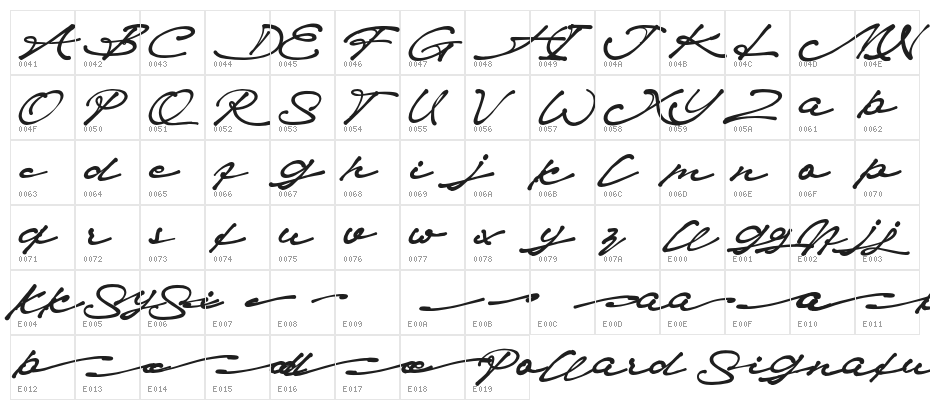 A B C D E F G H I J K L M N
0041 0042 0043 0044 0045 0046 0047 0048 0049 004A 004B 004C 004D 004E
O P Q R S T U V W X Y Z a b
004F 0050 0051 0052 0053 0054 0055 0056 0057 0058 0059 005A 0061 0062
c d e f g h i j k l m n o p
0063 0064 0065 0066 0067 0068 0069 006A 006B 006C 006D 006E 006F 0070
q r s t u v w x y z ll gg ff jj
0071 0072 0073 0074 0075 0076 0077 0078 0079 007A E000 E001 E002 E003
kk Sy Si a a a
E004 E005 E006 E007 E008 E009 E00A E00B E00C E00D E00E E00F E010 E011
b d Pollard Signatu
E012 E013 E014 E015 E016 E017 E018 E019